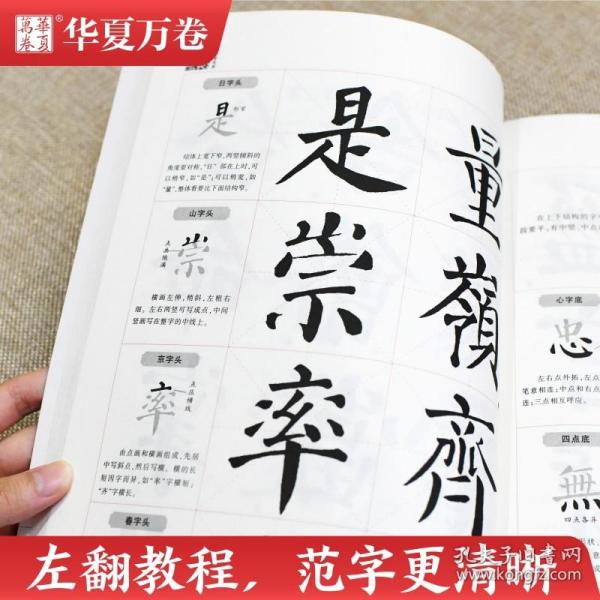 華夏萬卷®
华夏万卷
日字头
是
稍窄
结体上宽下窄,两竖倾斜的
角度要对称,“日”部在上时,可
以稍窄,如“是”;可以稍宽,如
“量”,整体看要比下面结构窄。
山字头
崇
点画饱满
横画左伸,稍斜,左粗右
细。左右两竖可写成点,中间
竖画写在整字的中线上。
京字头
率
点压横线
由点画和横画组成,先居
中写斜点,然后写横。横的长
短因字而异,如“率”字横短;
“齐”字横长。
春字头
是
崇
率
量
嶺
齊
在上下结构的字中
要平,有中竖、中点
心字底
忠
左右点外拓,左点
笔意相连;中点和右点
连;三点相互呼应。
四点底
無
四点各异
左翻教程,范字更清晰
孔夫子旧书网
www.kongfz.com